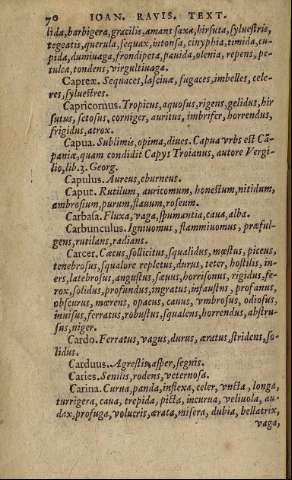 70 IOAN. RAVIS. TEXT.
lida, barbigera, gracilis, amans saxa, hirsuta, syluestris,
tegeatis, querula, sequax, intonsa, cinyphia, timida, cu-
pida, dumiuaga, frondipeta, pauida, olenia, repens, pe-
tulca, tondens, virgultiuaga.
Capreæ. Sequaces, lasciuæ, fugaces, imbelles, cele-
res, syluestres.
Capricornus. Tropicus, aquosus, rigens, gelidus, hir
sutus, setosus, corniger, auritus, imbrifer, horrendus,
frigidus, atrox.
Capua. Sublimis, opima, diues. Capua vrbs est Cã-
paniæ, quam condidit Capys Troianus, autore Vergi-
lio, lib. 2. Georg.
Capulus. Aureus, eburneus.
Caput. Rutilum, auricomum, honestum, nitidum,
ambrosium, purum, flauum, roseum.
Carbasa. Fluxa, vaga, spumantia, caua, alba.
Carbunculus. Igniuomus, flammiuomus, præful-
gens, rutilans, radians.
Carcer. Cæcus, sollicitus, squalidus, mœstus, piceus,
tenebrosus, squalore repletus, durus, teter, hostilis, in-
ers, latebrosus, angustus, sæuus, horrisonus, rigidus, fe-
rox, solidus, profundus, ingratus, infaustus, profanus,
obscurus, mœrens, opacus, canus, vmbrosus, odiosus,
inuisus, ferratus, robustus, squalens, horrendus, abstru-
sus, niger.
Cardo. Ferratus, vagus, durus, æratus, stridens, so-
lidus.
Carduus. Agrestis, asper, segnis.
Caries. Senilis, rodens, veternosa.
Carina. Curua, panda, inflexa, celer, vncta, longa,
turrigera, caua, trepida, picta, incurua, veliuola, au-
dax, profuga, volucris, ærata, misera, dubia, bellatrix,
vaga,